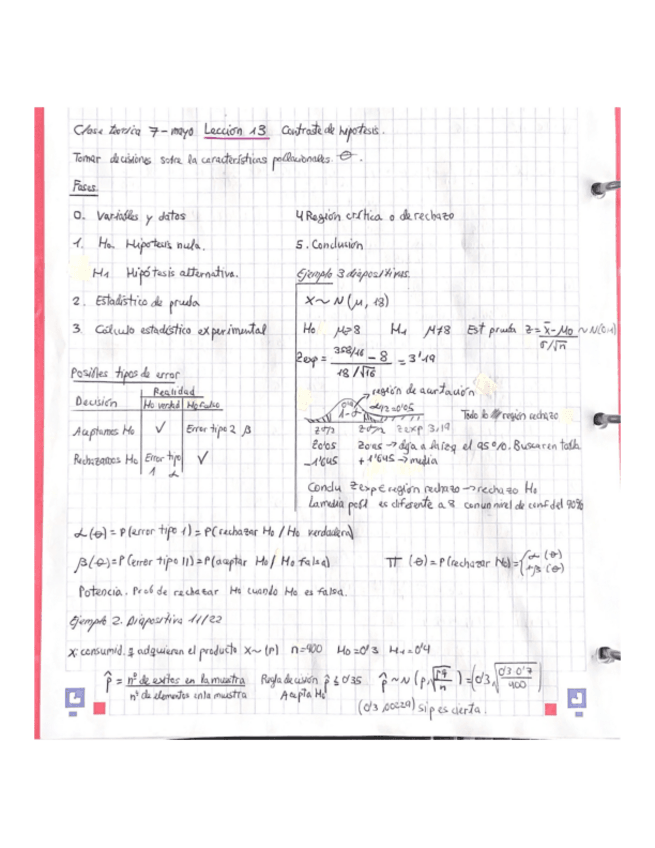 Clase teorica 7-mayo Leccion 13 Contraste de hipotesis.
Tomar decisiones sobre la caracteristicas poblacionales ϴ.
Fases.
0. Variables y datos
1. Ho. Hipotesis nula.
H1 Hipótesis alternativa.
2. Estadistico de prueba
3. Cálculo estadistico experimental
4 Región crítica o de rechazo
5. Conclusión
Ejemplo 3 diapositivas.
X~N(μ, 18)
Ho μ=8 H1 μ≠8 Est prueba z = (x̄-μo)/(σ/√n) ~ N(0,1)
Zexp = (358/16 - 8)/(18/√16) = 3'19
región de aceptación
1-α α/2=0'05
Todo lo región rechazo
zexp 3,19
Z0'05 Z0'95 → deja a la izq el 95%. Buscar en tabla
-1'645 +1'645 → media
Conclu zexp ∈ región rechazo → rechazo Ho
La media pobl es diferente a 8 con un nivel de conf del 90%
Posibles tipos de error
Realidad
Decisión Ho verdad Ho falso
Aceptamos Ho ✓ Error tipo 2 β
Rechazamos Ho Error tipo 1 α ✓
α(ϴ) = P(error tipo 1) = P(rechazar Ho / Ho verdadera)
β(ϴ) = P(error tipo II) = P(aceptar Ho / Ho falsa) Π(ϴ) = P(rechazar Ho) = { α(ϴ)
1-β(ϴ)
Potencia. Prob de rechazar Ho cuando Ho es falsa.
Ejemplo 2. Diapositiva 11/22
x: consumid. q adquieren el producto X~(p) n=900 Ho=0'3 H1=0'4
p̂ = nº de exitos en la muestra / nº de elementos en la muestra Regla decisión p̂ ≤ 0'35 Acepta Ho p̂ ~ N(p, √(pq/n)) = (0'3, √(0'3·0'7/900))
(0'3, 0'0229) si p es cierta.